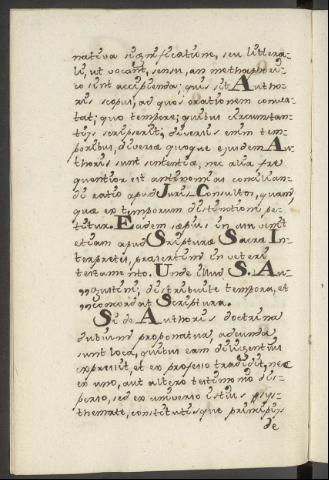 nativa significatione, seu littera-
li, ut vocant, sensu, an methaphori-
co sint accipienda; quis sit Autho-
ris scopus, ad quos orationem conver-
tat; quo tempore; quibus circumstan-
tiis scripserit; diversis enim tem-
poribus, diversa quoque ejusdem Au-
thoris sunt sententia, nec alia fre
quentior est antinomias concilian-
di ratio apud Juris Consultos, quam
quæ ex temporum distinctione pe-
titur. Eadem sæpius in usu venit
etiam apud Scripturæ Sacræ In-
terpretes, præsertim in veteri
testamento. Unde illud S. Au-
gustini; distribuite tempora, et
concordat Scriptura.
Si de Authoris doctrina
dubium proponatur adeunda
sunt loca, quibus eam diligentius
expressit, et ex professo tradidit, nec
ex uno, aut altero testimonio dis-
perso, sed ex universo istius sys-
themate, constitutisque principiis
de